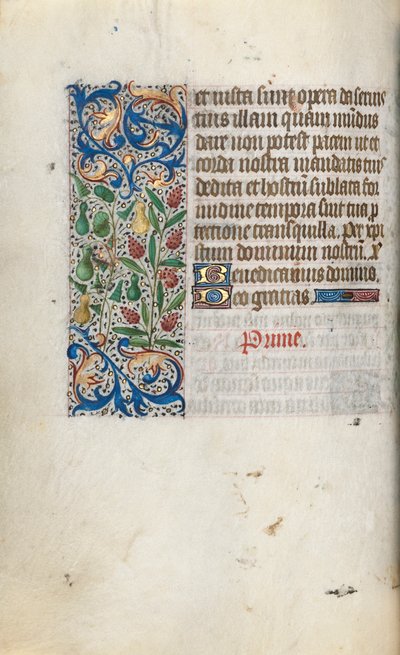 et iusta sunt opera da seruis
tuis illam quam mundus
dare non potest pacem ut et
corda nostra mandatis tuis
dedita et hostium sublata for
midine tempora sint tua p
tectione tranquilla. Per xpi
stum dominum nostrum. 
Benedicamus domino.
Deo gratias.
Prime.